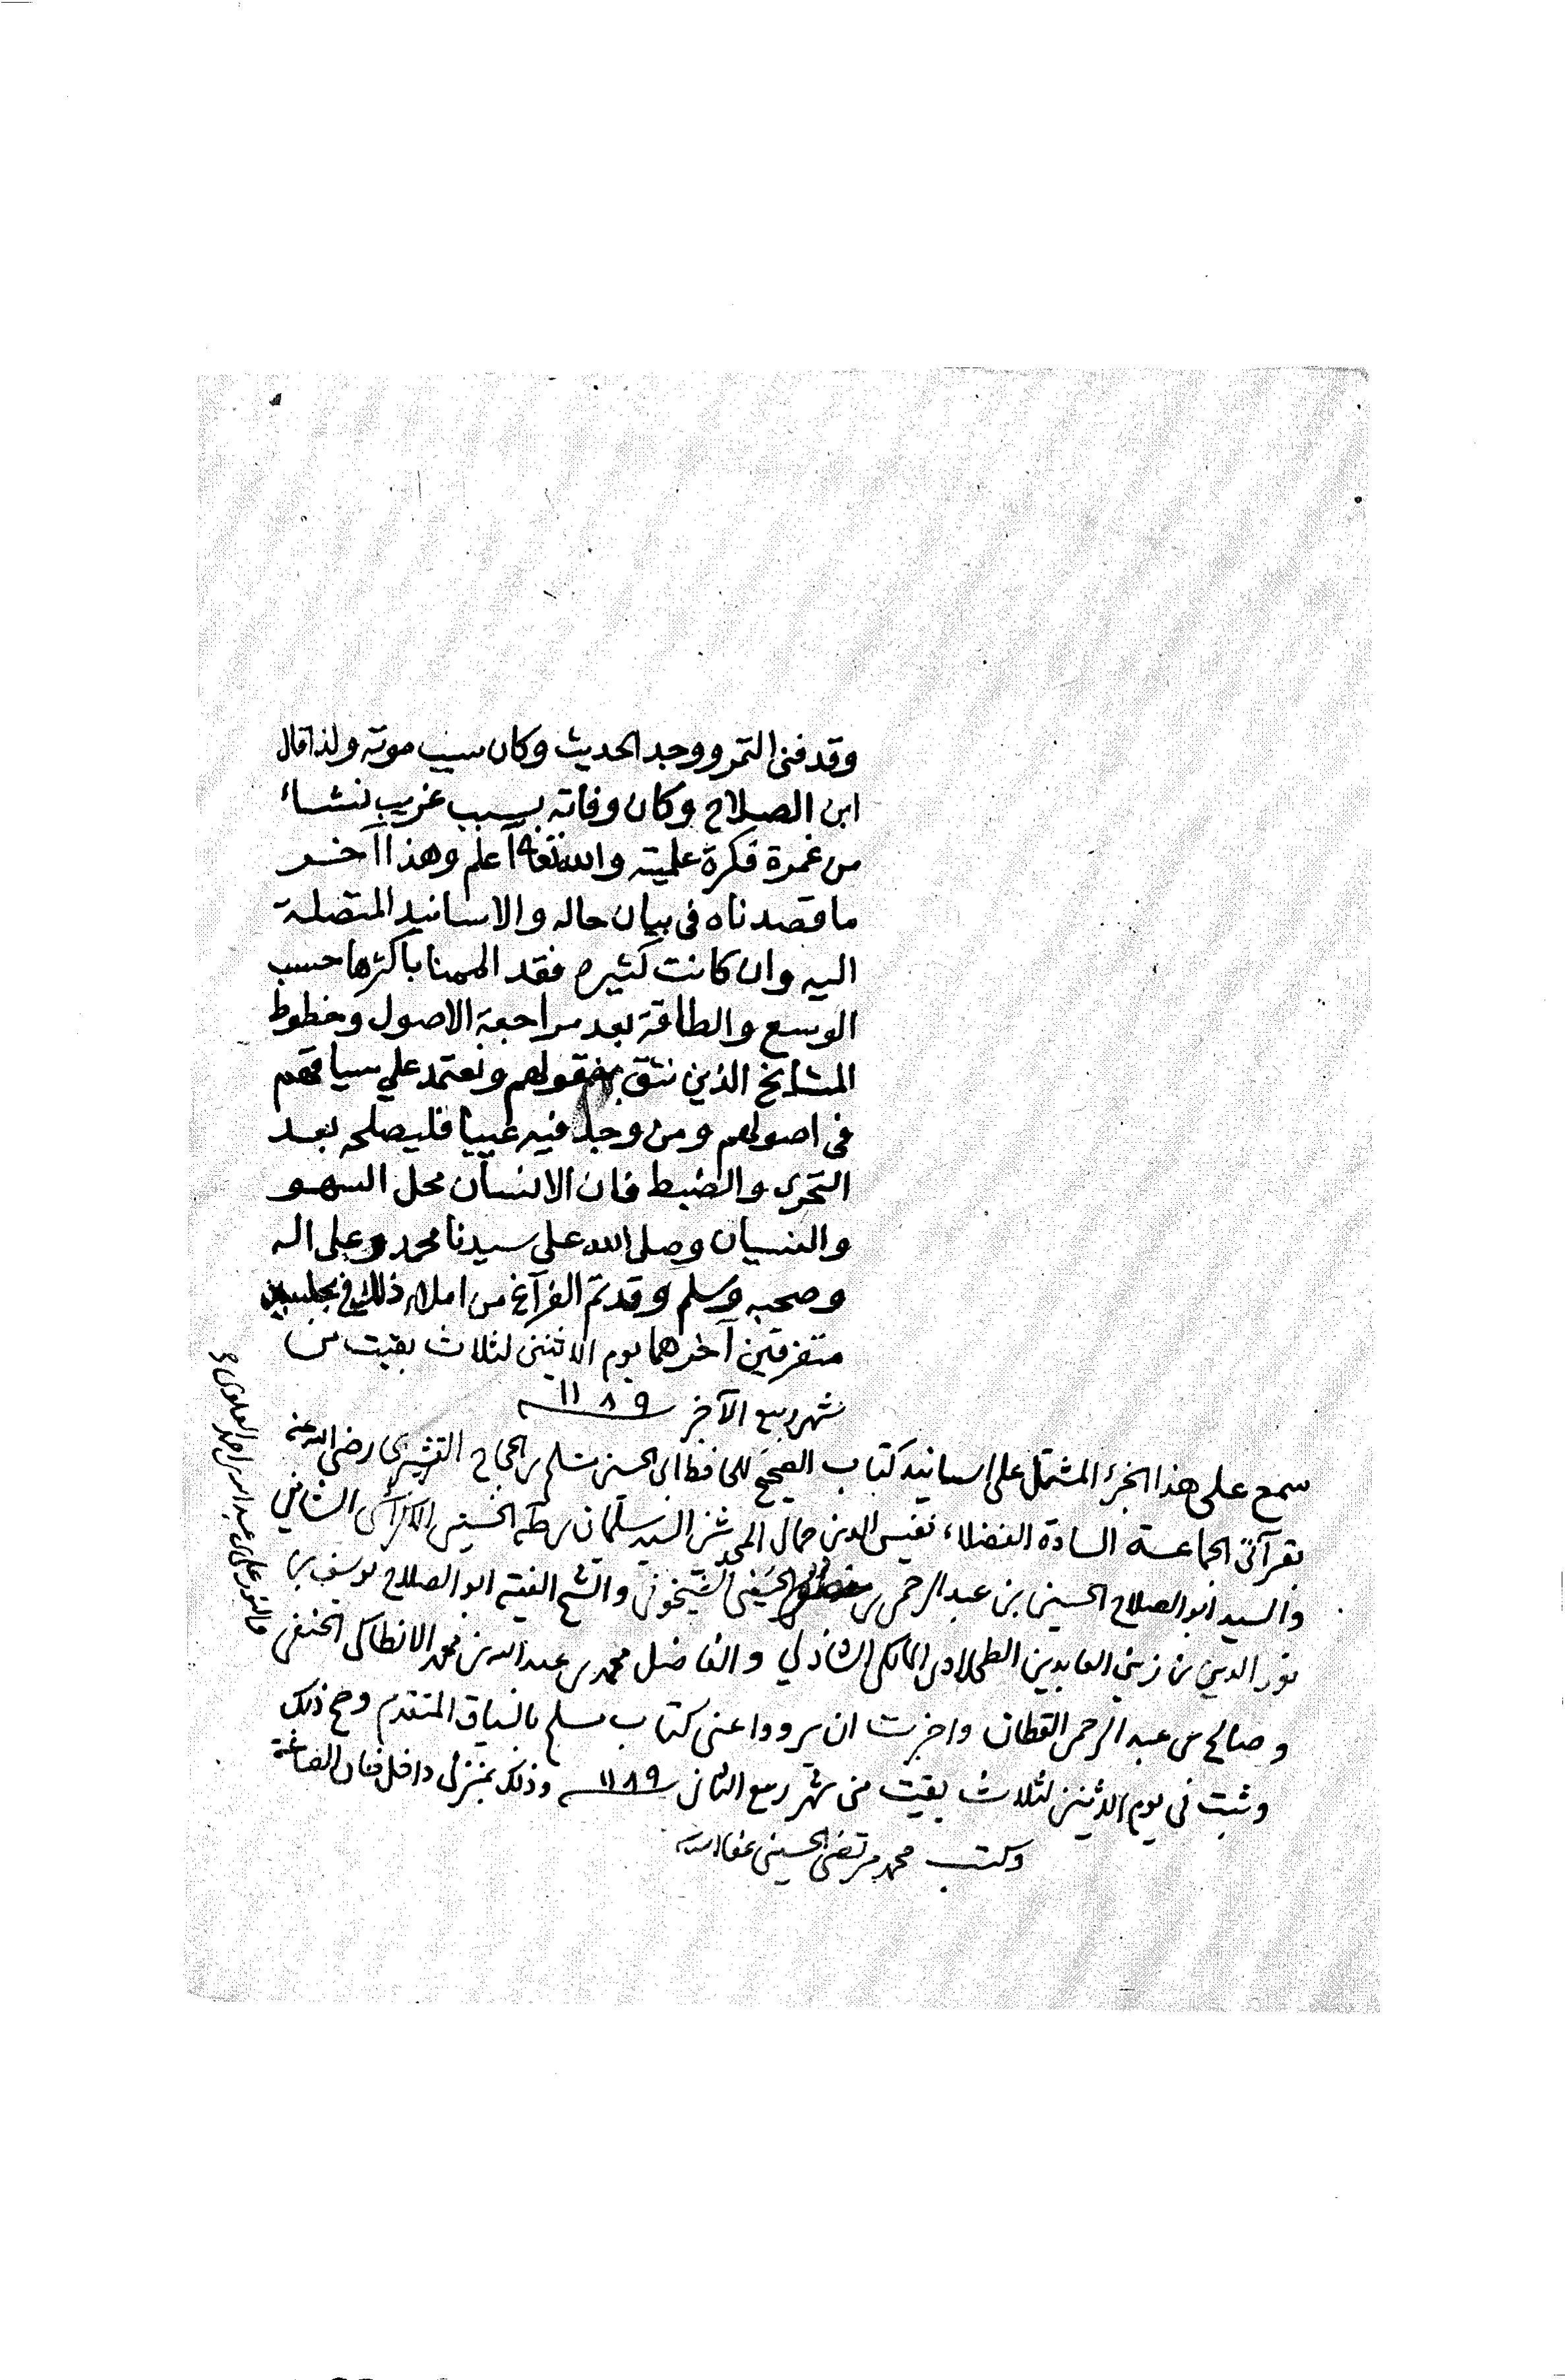 وقد فنى التمر ووجد الحديث وكان سبب موته ولذا قال
ابن الصلاح وكان وفاته بسبب غريب نشاء
من غمرة فكرة علمية والله تعالى اعلم وهذا آخر
ما قصدناه فى بيان حاله والاسانيد المتصلة
اليه وان كانت كثيرة فقد الممنا باكثرها حسب
الوسع والطاقة بعد مراجعة الاصول وخطوط
المشايخ الذين نثق بنقولهم ونعتمد على سياقهم
فى اصولهم ومن وجد فيه عيبا فليصلحه بعد
التحرى والضبط فان الانسان محل السهو
والنسيان وصلى الله على سيدنا محمد وعلى اله
وصحبه وسلم وقد تم الفراغ من املاء ذلك فى مجلسين
متفرقين آخرهما يوم الاثنين لثلاث بقيت من
شهر ربيع الآخر ١١٨٩
سمع على هذا الجزء المشتمل على اسانيد كتاب الصحيح للحافظ ابى الحسين مسلم بن الحجاج القشيرى رضى الله عنه
بقرآتى الجماعة السادة الفضلاء نفيس الدين جمال المحدثين السيد سليمان بن طه الحسينى الاكراشى الشافعى
والسيد ابو الصلاح الحسينى بن عبد الرحمن بن الحنفى الشيخونى والشيخ الفقيه ابو الصلاح يوسف بن
نور الدين بن زين العابدين الطحلاوى المالكى الشاذلي والفاضل محمد بن عبد الله بن محمد الانطاكى الحنفى
وصالح بن عبد الرحمن القطان واجزت ان يرووا عنى كتاب مسلم بالسياق المتقدم وصح ذلك
وثبت فى يوم الاثنين لثلاث بقيت من شهر ربيع الثانى ١١٨٩ وذلك بمنزلى داخل خان الصاغة
وكتب محمد مرتضى الحسينى عفا الله عنه
والنور على بن عبد الله بن احمد العلوى